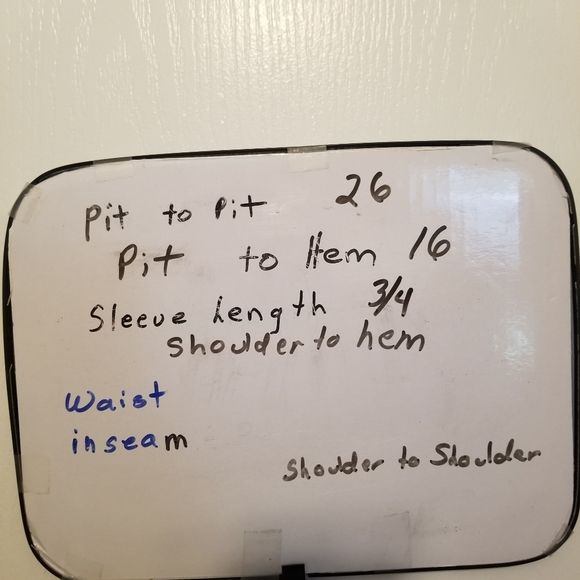 Pit to Pit 26
Pit to Hem 16
Sleeve Length 3/4
Shoulder to hem
Waist
inseam
Shoulder to Shoulder